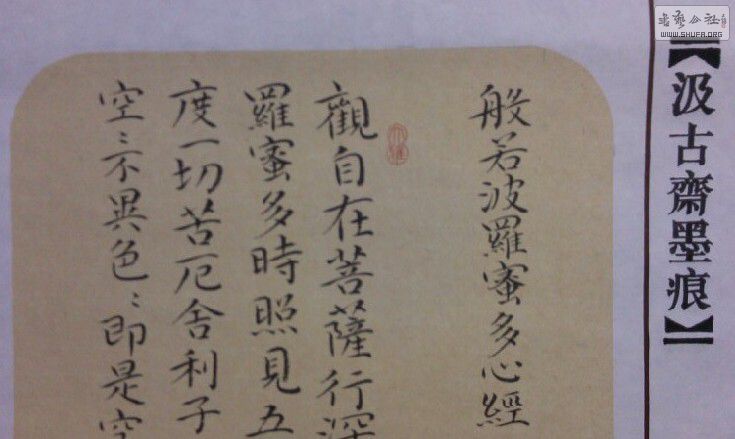 【汲古齋墨痕】
般若波羅蜜多心經
觀自在菩薩行深
羅蜜多時照見五
度一切苦厄舍利子
空〻不異色〻即是空
WWW.SHUFA.ORG